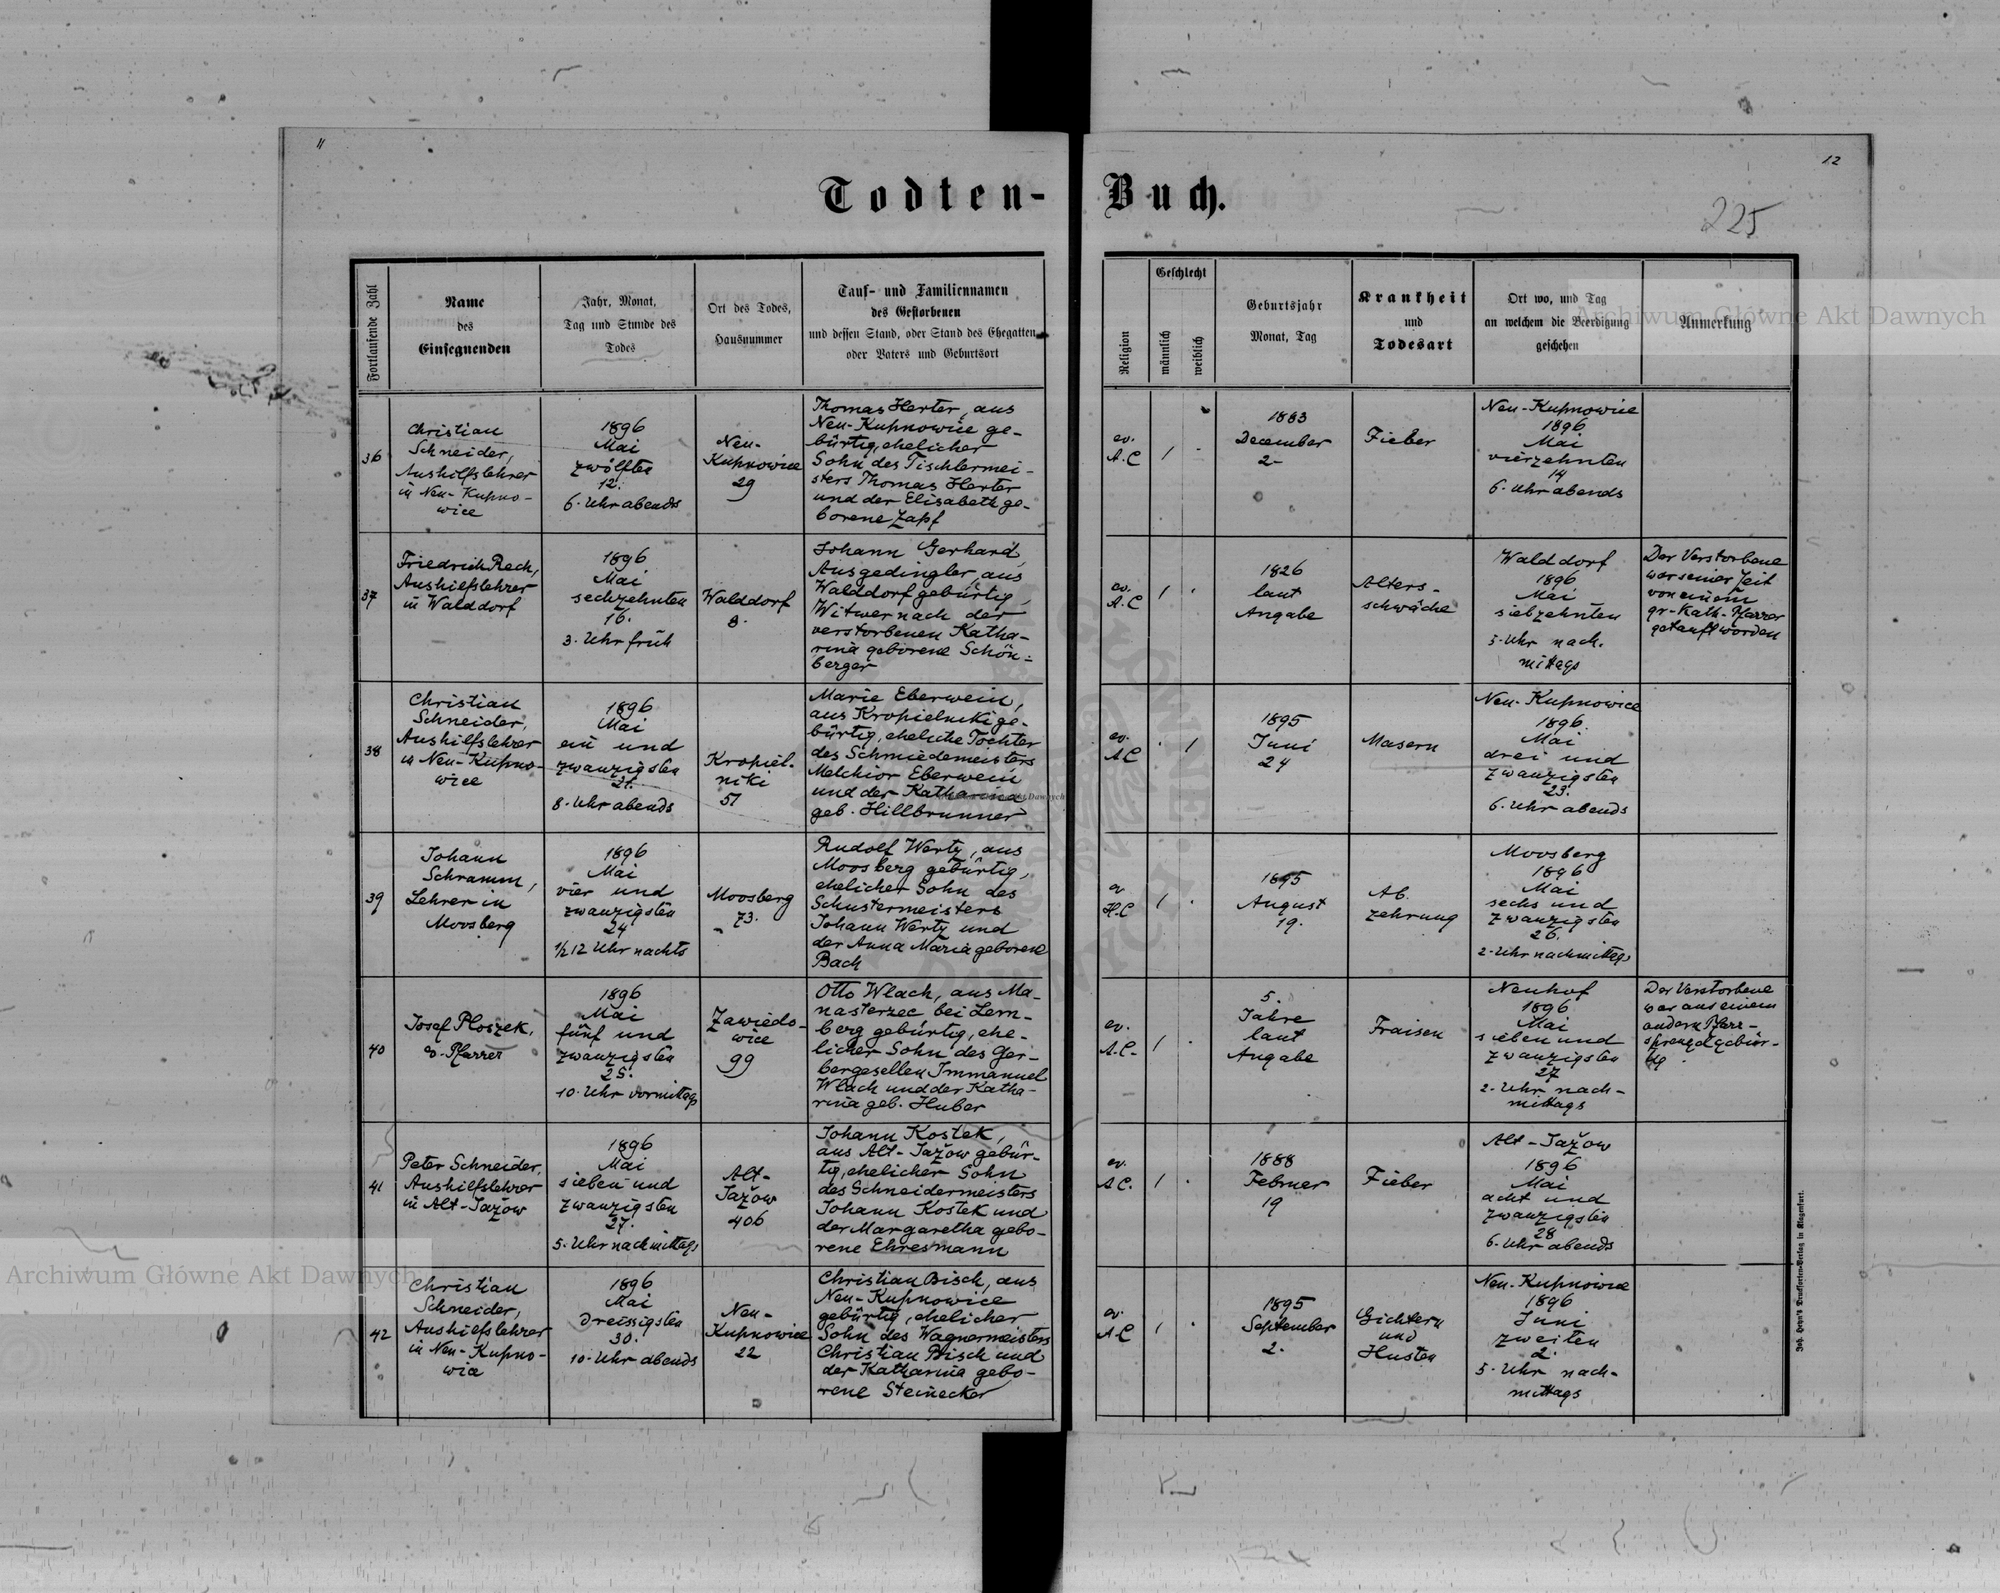 11
12
Todten-Buch.
225
Fortlaufende Zahl
Name
des
Einsegnenden
Jahr, Monat,
Tag und Stunde des
Todes
Ort des Todes,
Hausnummer
Tauf- und Familiennamen
des Gestorbenen
und dessen Stand, oder Stand des Ehegatten
oder Vaters und Geburtsort
Religion
Geschlecht
männlich
weiblich
Geburtsjahr
Monat, Tag
Krankheit
und
Todesart
Ort wo, und Tag
an welchem die Beerdigung
geschehen
Anmerkung
36
Christian
Schneider,
Aushilfslehrer
in Neu-Kupno-
wice
1896
Mai
zwölften
12.
6. Uhr abends
Neu-
Kupnowice
29
Thomas Herter, aus
Neu-Kupnowice ge-
bürtig, ehelicher
Sohn des Tischlermei-
sters Thomas Herter
und der Elisabeth ge-
borene Zapf
ev.
A.C
1
1883
December
2-
Fieber
Neu-Kupnowice
1896
Mai
vierzehnten
14
6. Uhr abends
37
Friedrich Rech,
Aushilfslehrer
in Walddorf
1896
Mai
sechzehnten
16.
3. Uhr früh
Walddorf
8.
Johann Gerhard,
Ausgedingler, aus
Walddorf gebürtig,
Witwer nach der
verstorbenen Katha-
rina geborene Schön-
berger
ev.
A.C
1
1826
laut
Angabe
Alters-
schwäche
Walddorf
1896
Mai
siebzehnten
5. Uhr nach-
mittags
Der Verstorbene
war seiner Zeit
von einem
gr-Kath-Pfarrer
getauft worden
38
Christian
Schneider,
Aushilfslehrer
in Neu-Kupno-
wice
1896
Mai
ein und
zwanzigsten
21.
8. Uhr abends
Kropiel-
niki
51
Marie Eberwein,
aus Kropielniki ge-
bürtig, eheliche Tochter
des Schmiedemeisters
Melchior Eberwein
und der Katharina
geb. Hillbrunner
ev.
A.C
1
1895
Juni
24
Masern
Neu-Kupnowice
1896
Mai
drei und
zwanzigsten
23.
6. Uhr abends
39
Johann
Schramm,
Lehrer in
Moosberg
1896
Mai
vier und
zwanzigsten
24
1/2 12 Uhr nachts
Moosberg
73.
Rudolf Werty, aus
Moosberg gebürtig,
ehelicher Sohn des
Schustermeisters
Johann Werty und
der Anna Maria geborene
Bach
ev
H.C
1
1895
August
19.
Ab.
zehrung
Moosberg
1896
Mai
sechs und
zwanzigsten
26.
2. Uhr nachmittags
40
Josef Ploszek,
ev. Pfarrer
1896
Mai
fünf und
zwanzigsten
25.
10. Uhr vormittags
Zawiedo-
wice
99
Otto Wlach, aus Ma-
nasterzec bei Lem-
berg gebürtig, ehe-
licher Sohn des Ger-
bergesellen Immanuel
Wlach und der Katha-
rina geb. Huber
ev.
A.C.
1
5.
Jahre
laut
Angabe
Fraisen
Neuhof
1896
Mai
sieben und
zwanzigsten
27
2. Uhr nach-
mittags
Der Verstorbene
war aus einem
andern Pfarr-
sprengel gebür-
tig
41
Peter Schneider,
Aushilfslehrer
in Alt-Jažow
1896
Mai
sieben und
zwanzigsten
27.
5. Uhr nachmittags
Alt-
Jažow
406
Johann Kostek,
aus Alt-Jažow gebür-
tig, ehelicher Sohn
des Schneidermeisters
Johann Kostek und
der Margaretha gebo-
rene Ehresmann
ev.
A.C.
1
1888
Februer
19
Fieber
Alt-Jažow
1896
Mai
acht und
zwanzigsten
28
6. Uhr abends
42
Christian
Schneider,
Aushilfslehrer
in Neu-Kupno-
wice
1896
Mai
dreissigsten
30.
10. Uhr abends
Neu-
Kupnowice
22
Christian Bisch, aus
Neu-Kupnowice
gebürtig, ehelicher
Sohn des Wagnermeisters
Christian Bisch und
der Katharina gebo-
rene Steinecker
ev.
A.C
1
1895
September
2.
Gichtern
und
Husten
Neu-Kupnowice
1896
Juni
zweiten
2.
5. Uhr nach-
mittags
Joh. Heyn's Drucksorten-Verlag in Klagenfurt.
Archiwum Główne Akt Dawnych
Archiwum Główne Akt Dawnych